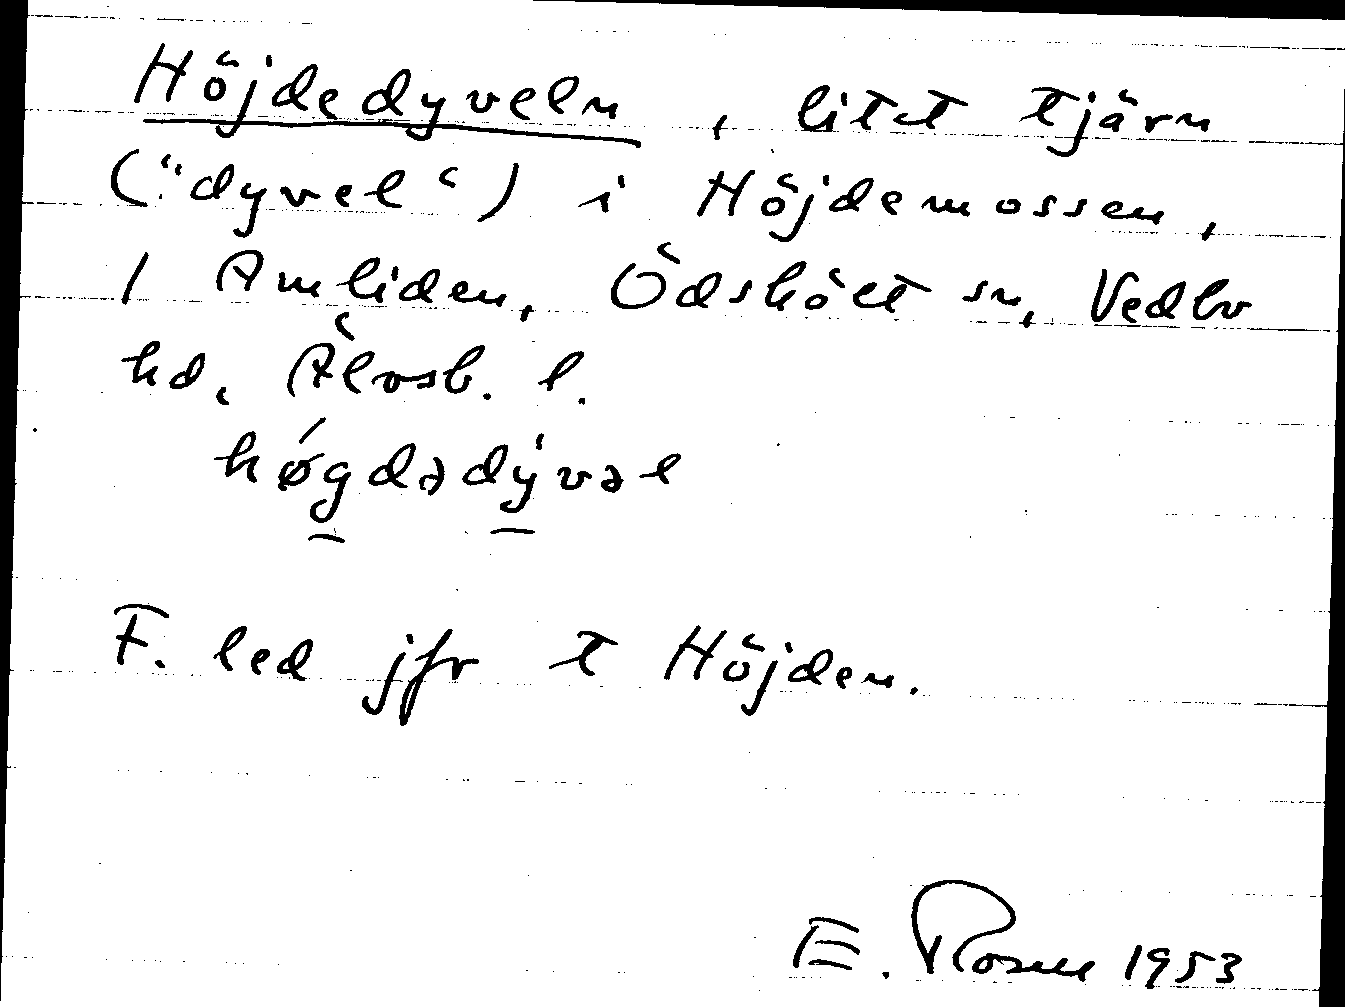 Höjdedyveln, litet tjärn
("dyvel") i Höjdemossen,
1 Amliden, Ödskölt sn, Vedbo
hd, Älvsb. l.
hǿgdədývəl
F. led jfr t Höjden.
E. Rosell 1953